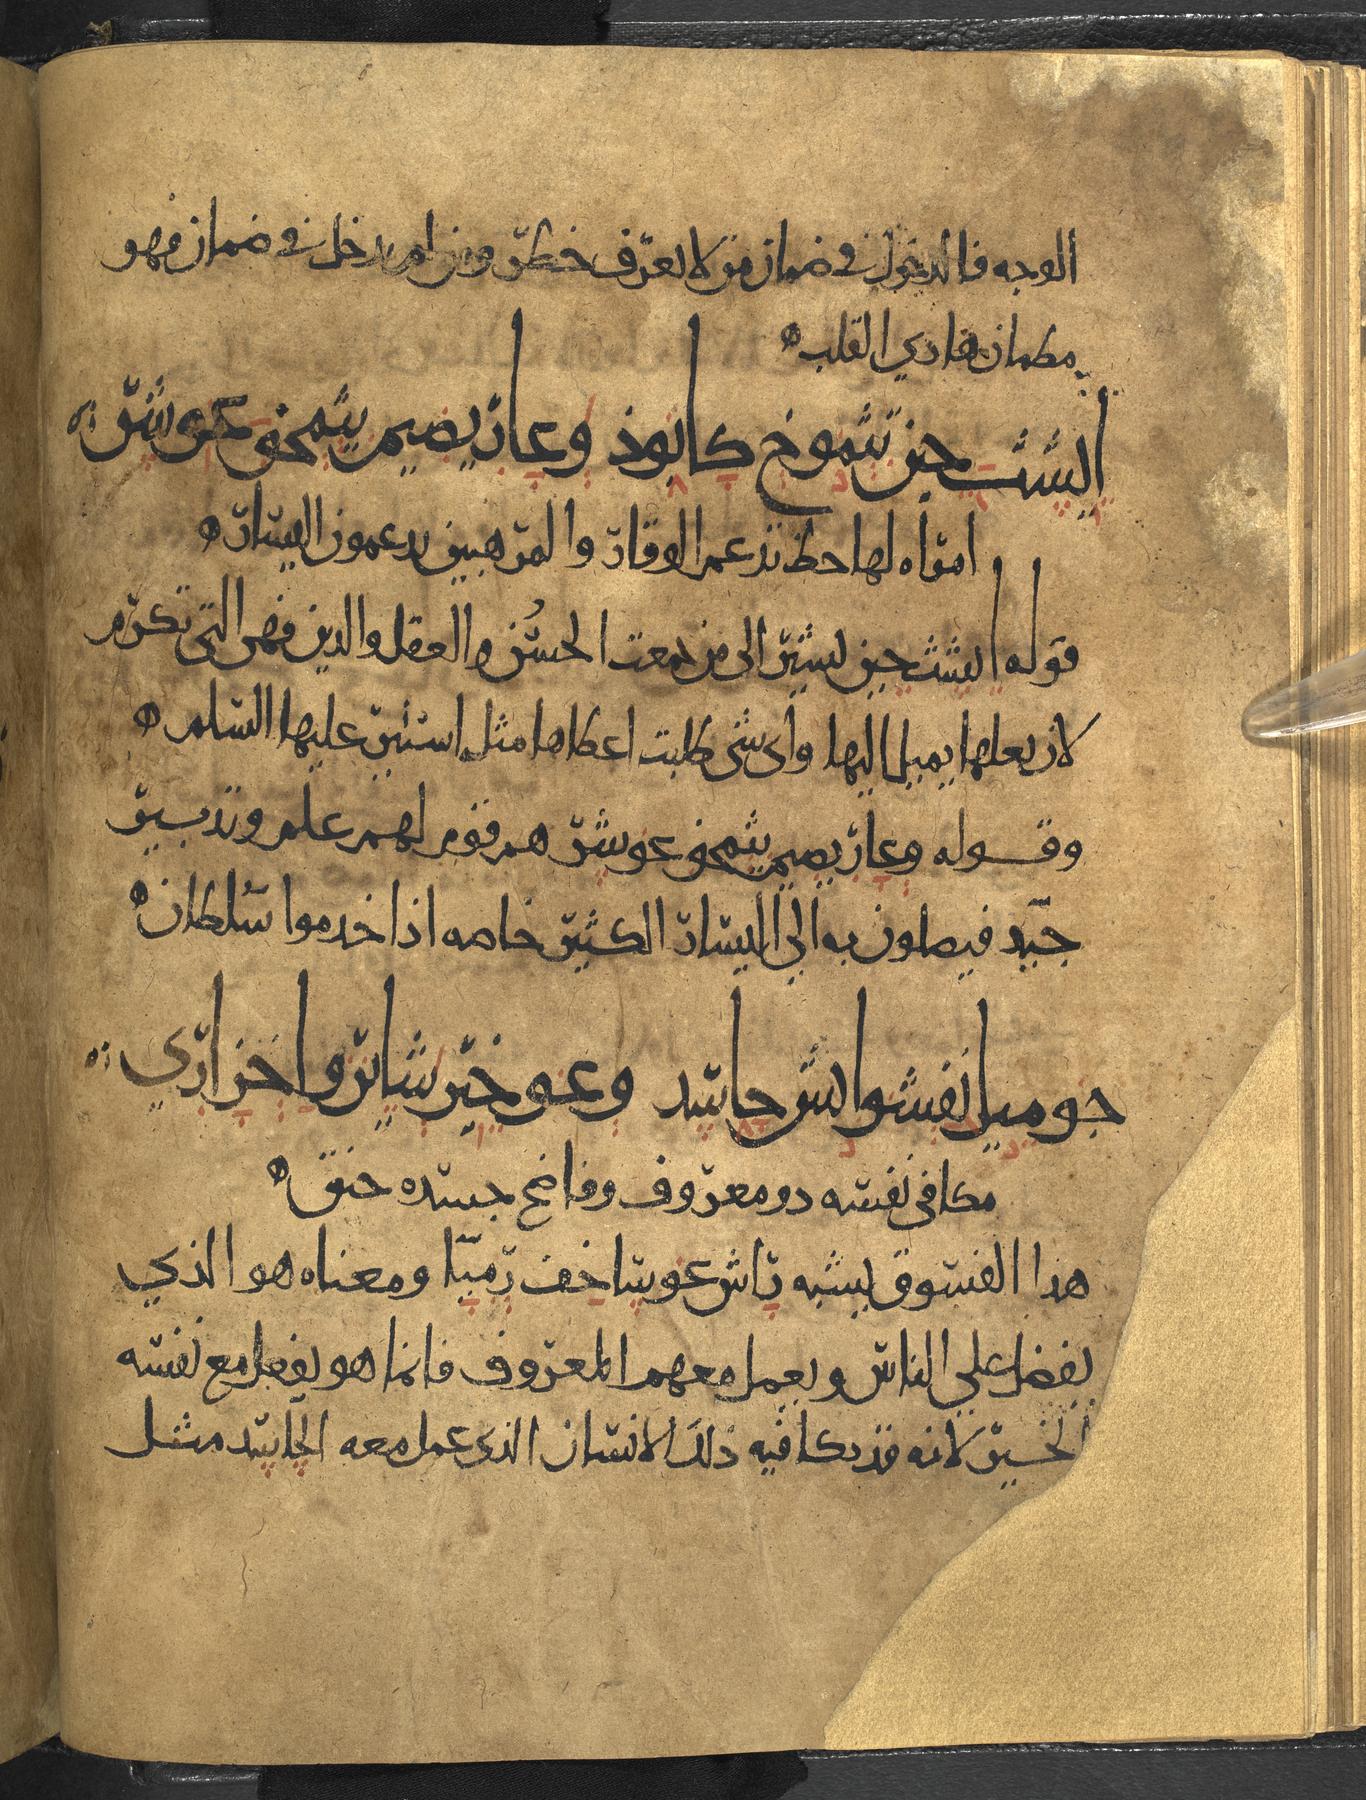 الوجه فالدخول في ضمان من لا يعرف خطر ومن لم يدخل في ضمان فهو
مطمان هادي القلب
ايشث حين تثموخ كابوذ وعاريصيم يثمخو عوشر
امراه لها حظ تدعم الوقار والمرهبين يدعمون اليسار
قوله ايشث حين يشير الى من جمعت الحسن والعقل والدين فهي التي تكرم
لان بعلها يميل اليها واي شي طلبت اعطاها مثل استير عليها السلم
وقوله وعاريصيم يثمخو عوشر هم قوم لهم علم وتدبير
جيد فيصلون به الي اليسار الكثير خاصه اذا خدموا سلطان
جوميل نفشو ايش حاسيد وعوخير شارو اخزاري
مكافي نفسه دو معروف وفاضح جسده حنق
هدا الفسوق يشبه راش عوسا خف رميا ومعناه هو الذي
يفضل علي الناس ويعمل معهم المعروف فانما هو يفعل مع نفسه
الخير لانه قد يكافيه ذلك الانسان الذي عمل معه الحاسيد مثل